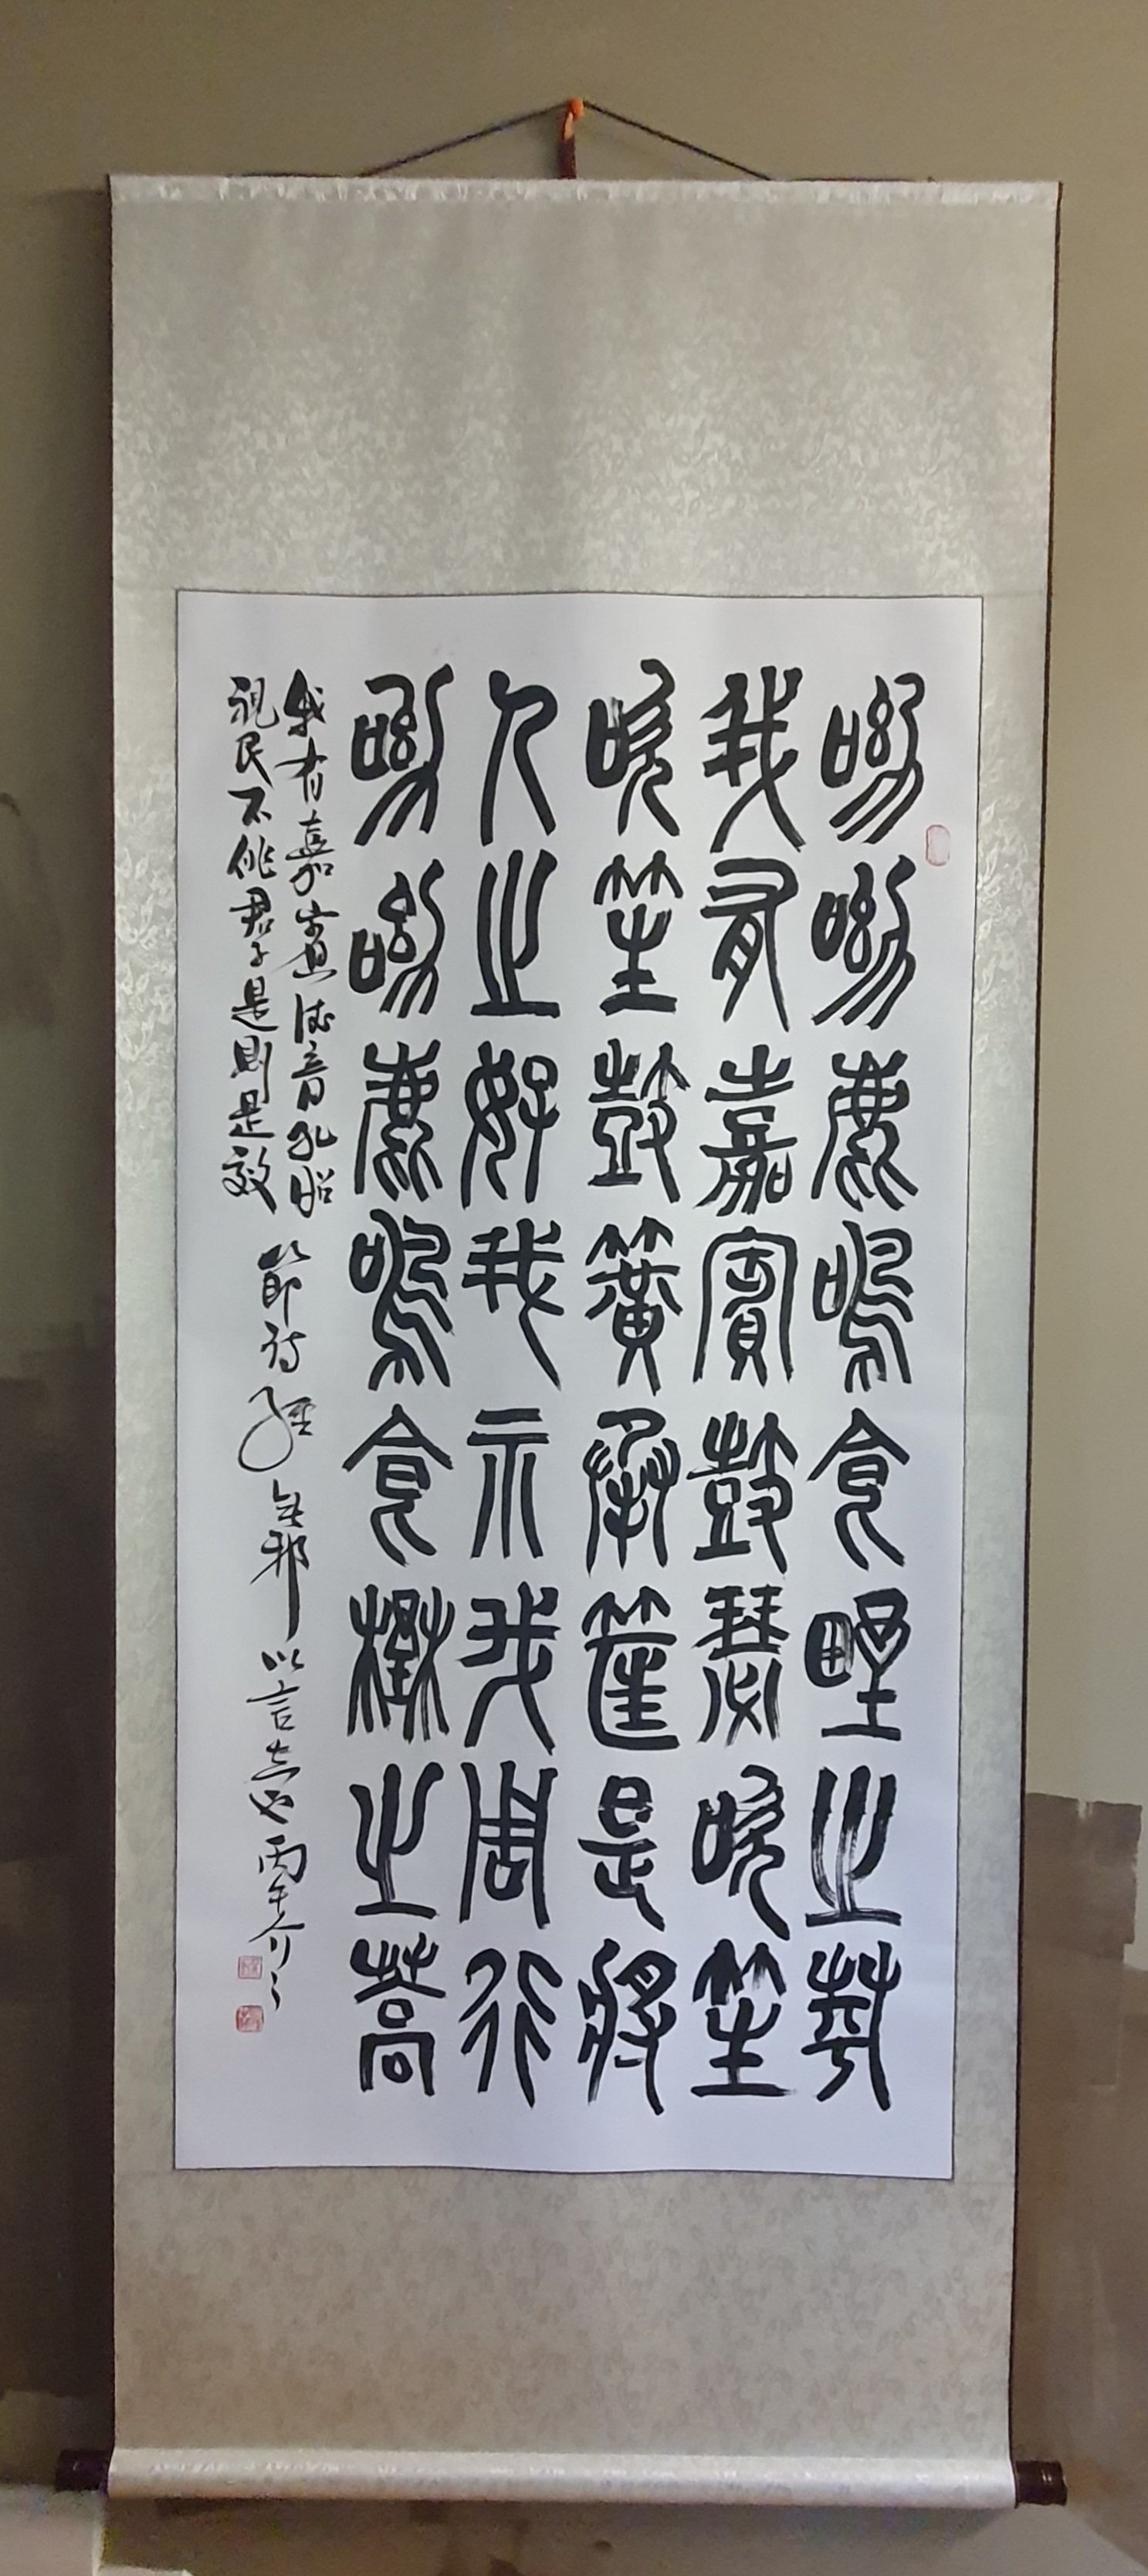 呦呦鹿鳴食野之苹
我有嘉賓鼓瑟吹笙
吹笙鼓簧承筐是將
人之好我示我周行
呦呦鹿鳴食野之蒿
我有嘉賓德音孔昭
視民不恌君子是則是效
節詩經
無邪
以言志也丙午